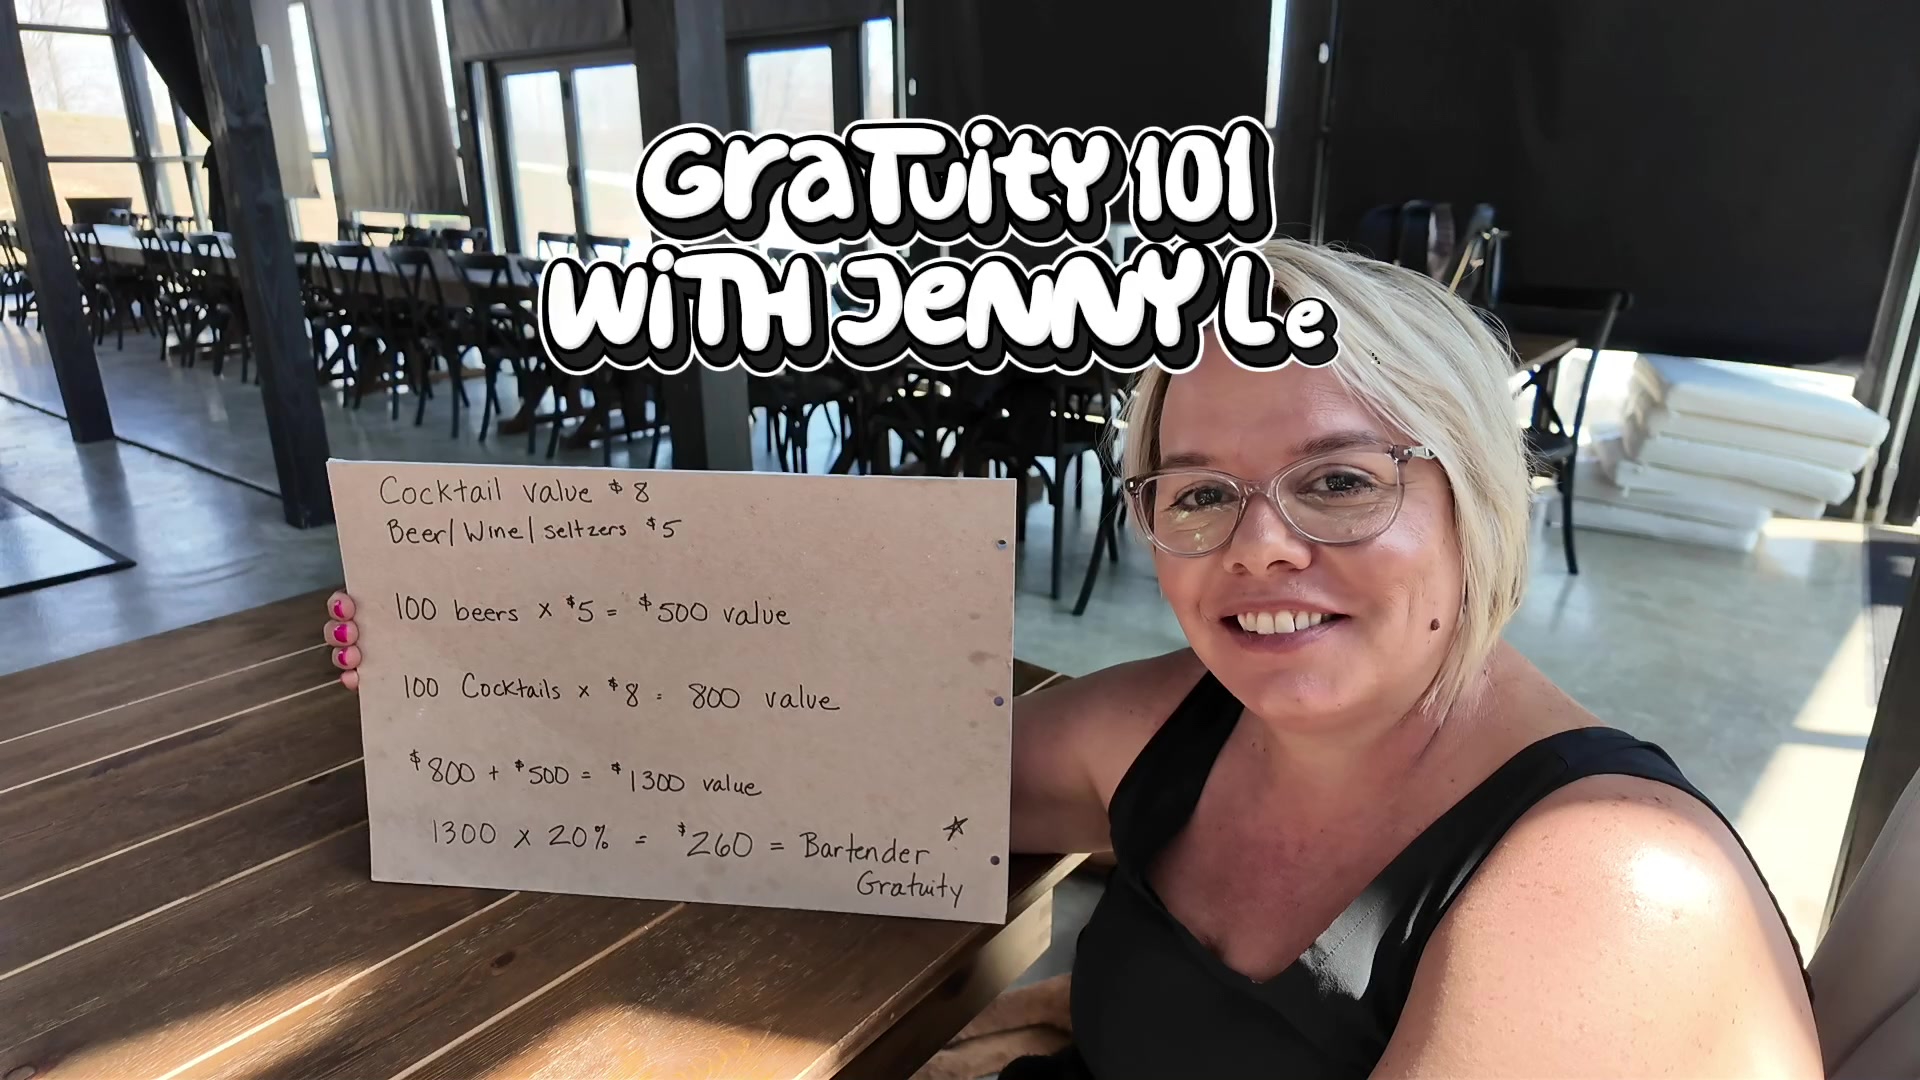 GraTuity 101
WiTH JeNNY Le
Cocktail value $8
Beer/Wine/seltzers $5
100 beers x $5 = $500 value
100 Cocktails x $8 = 800 value
$800 + $500 = $1300 value
1300 x 20% = $260 = Bartender
Gratuity